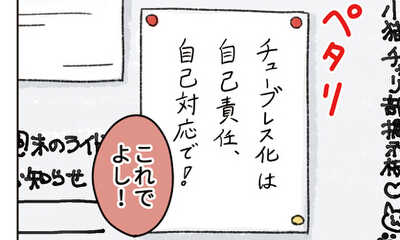 小猫チャリ部掲示板♡
ペタリ
チューブレス化は
自己責任、
自己対応で!
これで
よし!
週末のライド
お知らせ